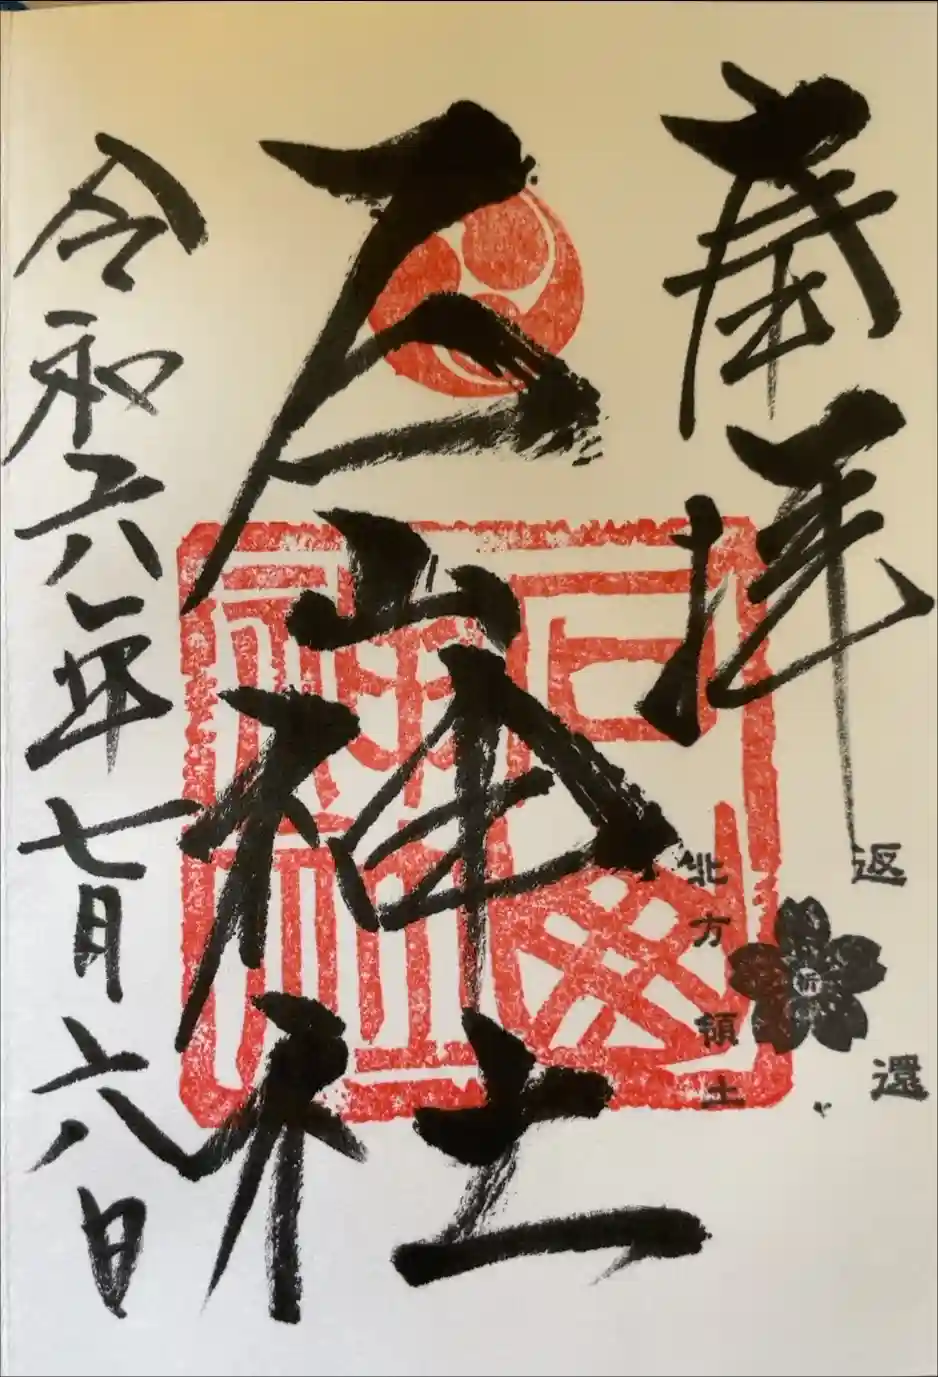 奉拝
石山神社
令和六年七月六日
北方領土
返還
祈